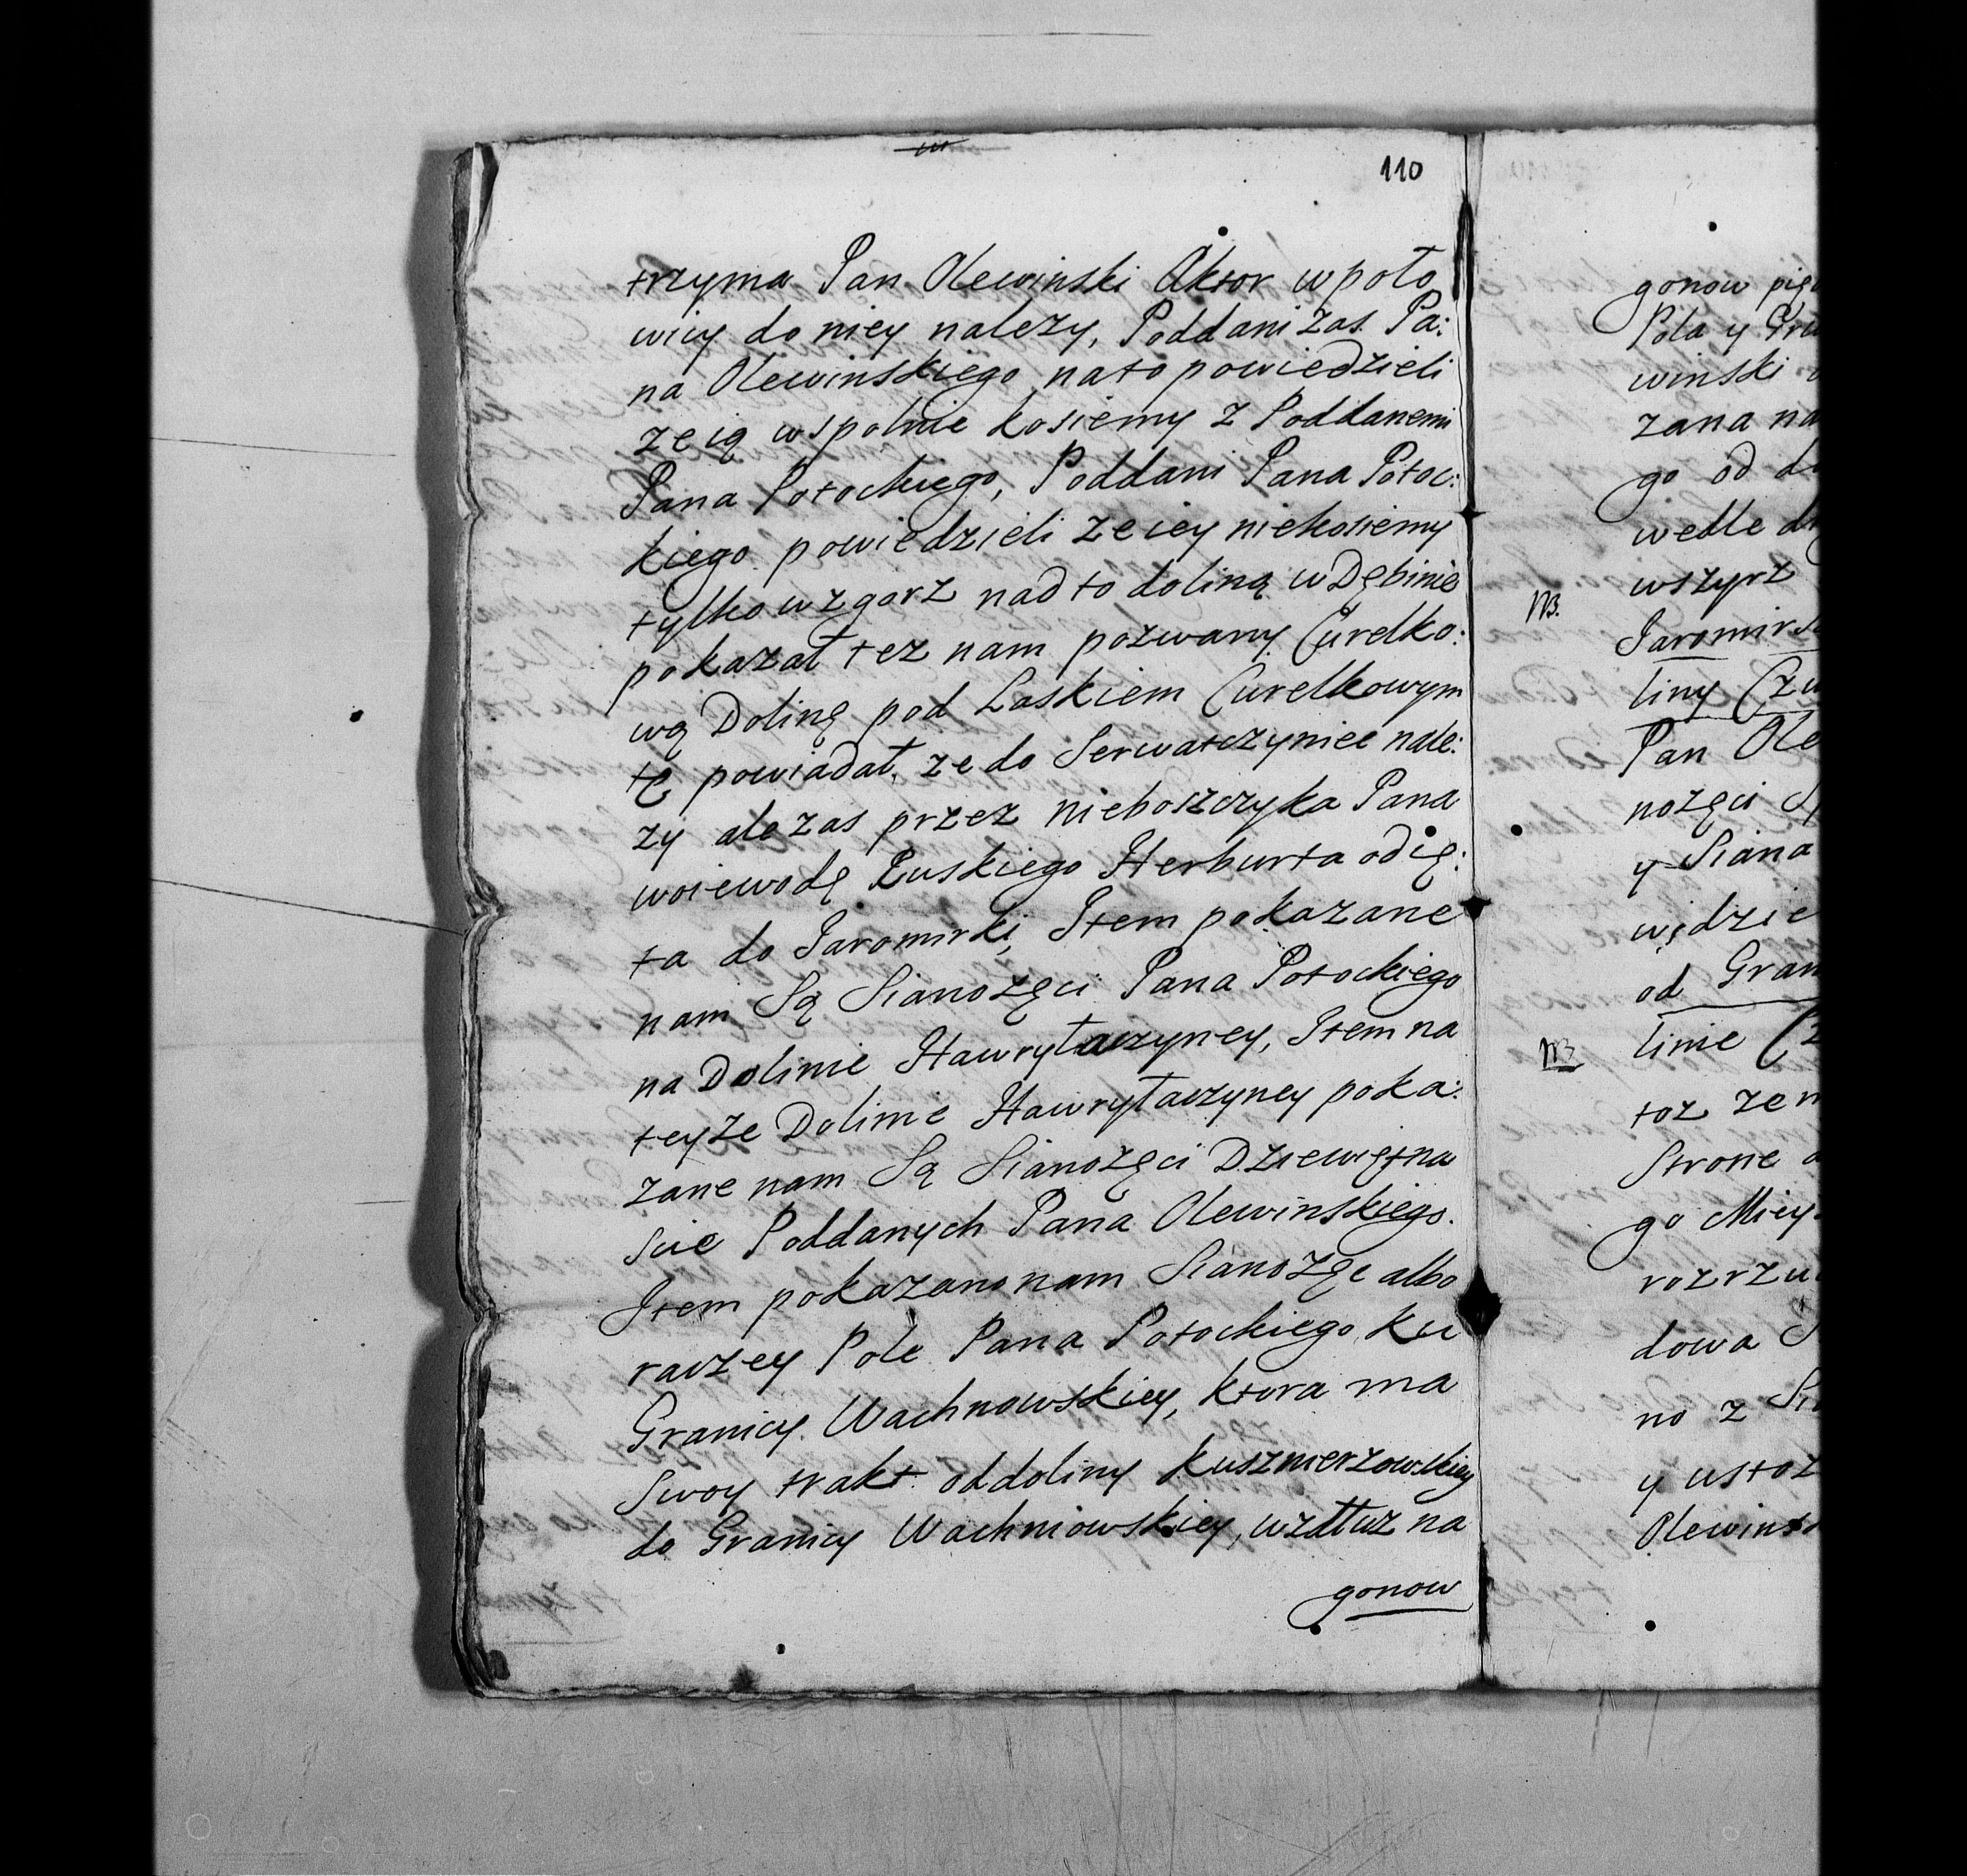 110
trzyma Pan Olewinski Aktor w poło
wicy do niey nalezy, Poddani zas Pa:
na Olewinskiego na to powiedzieli
ze ią wspolnie kosiemy z Poddanemi
Pana Potockiego, Poddani Pana Potoc:
kiego powiedzieli ze iey niekosiemy
tylko wzgorz nad to doliną w Dębinie
pokazał tez nam pozwany Curelko:
wą Dolinę pod Laskiem Curelkowym
tę powiadał, ze do Serwatczyniec nale:
zy ale zas przez nieboszczyka Pana
woiewodę Ruskiego Herburta odię:
ta do Jaromirki, Item pokazane
nam Są Sianozęci Pana Potockiego
na Dolinie Hawryłaczyney, Item na
teyze Dolinie Hawryłaczyney poka:
zane nam Są Sianozęci Dziewiętna
scie Poddanych Pana Olewinskiego.
Item pokazano nam Sianozęc albo
raczey Pole Pana Potockiego ku
Granicy Wachnowskiey, ktora ma
Swoy trakt od doliny Kuszmierzowskiey
do Granicy Wachniowskiey, wzdłuz na
gonow
gonow
Pola y
winski
zana na
go od
wedle
NB.
wszyrz
liny
Pan
y Siana
od
NB
linie
toz ze
Strone
go
dowa
no z
y